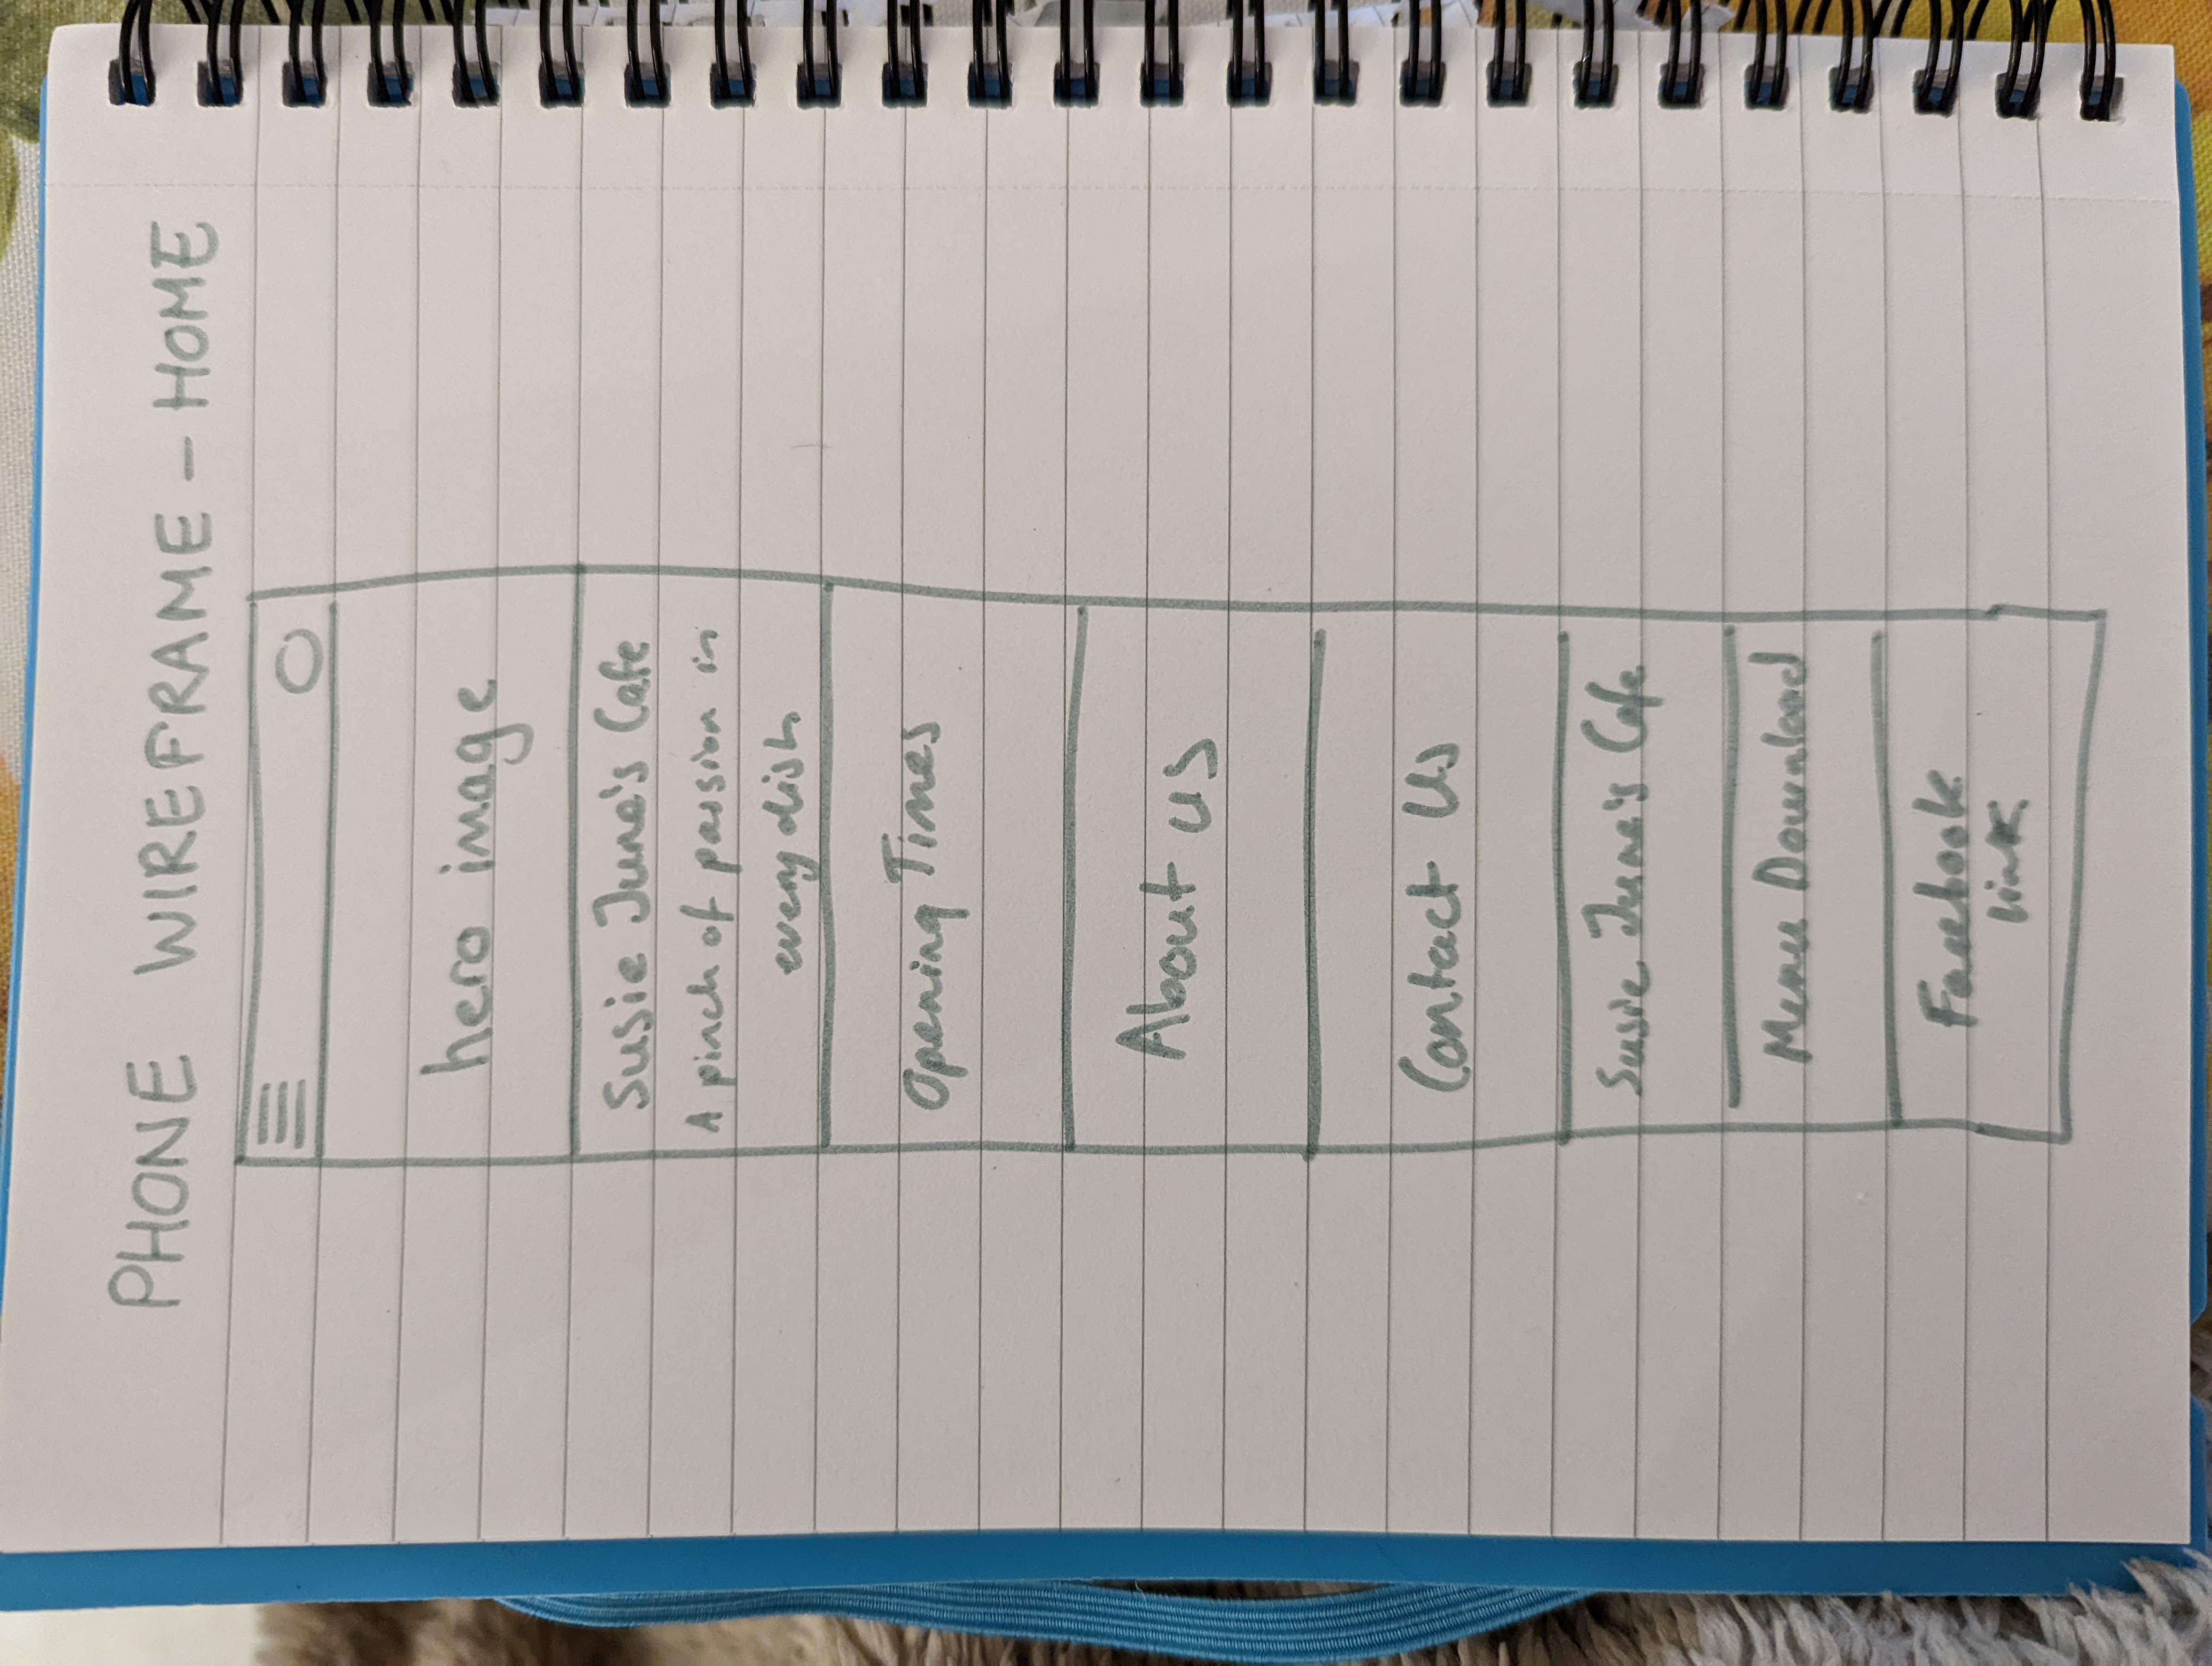 PHONE WIREFRAME - HOME
hero image
Susie June's Cafe
A pinch of passion in
every dish
Opening Times
About us
Contact Us
Susie June's Cafe
Menu Download
Facebook
link